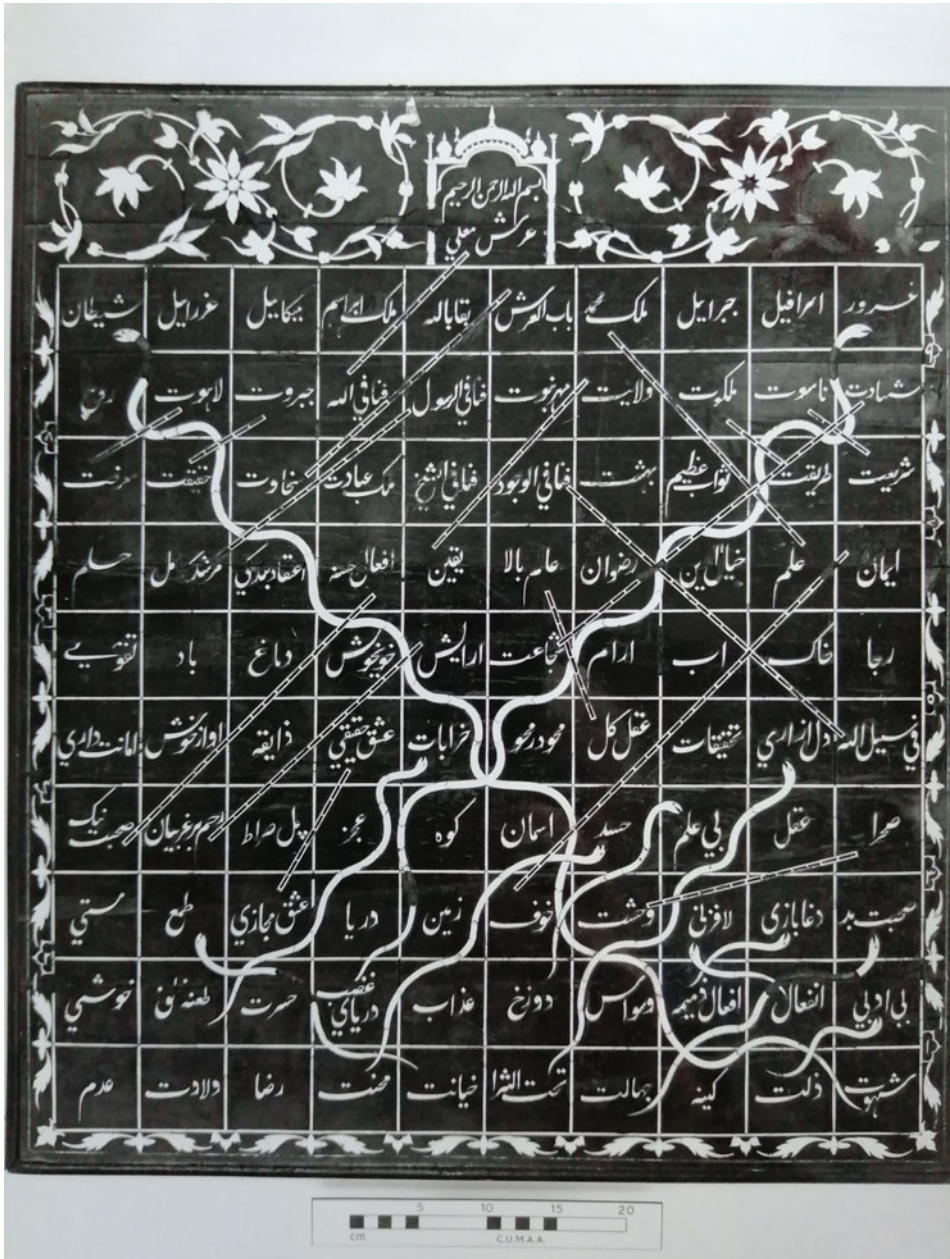 بسم الله الرحمن الرحيم
عرش معلی
غرور اسرافیل جبرایل ملک محمد باب العرش بقاباله ملک ابراهیم میکاییل عزرایل شیطان
شهادت ناسوت ملکوت ولایت فنافی الرسول فنافی الله جبروت لاهوت
شریعت طریقت ثواب عظیم بهشت فنافی الوجود فنافی الشیخ ملک عبادت سخاوت حقیقت معرفت
ایمان علم رضوان عالم بالا یقین افعال حسنه حلم
رجا خاک اب ارام شجاعت ارایش دماغ باد تقوے
فی سبیل الله دل ازاری تحقیقات عقل کل محو در محو خرابات عشق حقیقی ذایقه اواز خوش امانت داری
صحرا عقل بی علم حسد اسمان کوه عجز پل صراط صحبت نیک
صحبت بد دغابازی لافزنی وحشت خوف زمین دریا عشق مجازی طمع مستی
بی ادبی انفعال افعال ذمیمه وسواس دوزخ عذاب دریای غضب حسرت خوشی
شهوت ذلت کینه جهالت تحت الثرا خیانت محنت رضا ولادت عدم
5 10 15 20
cm
C.U.M.A.A.